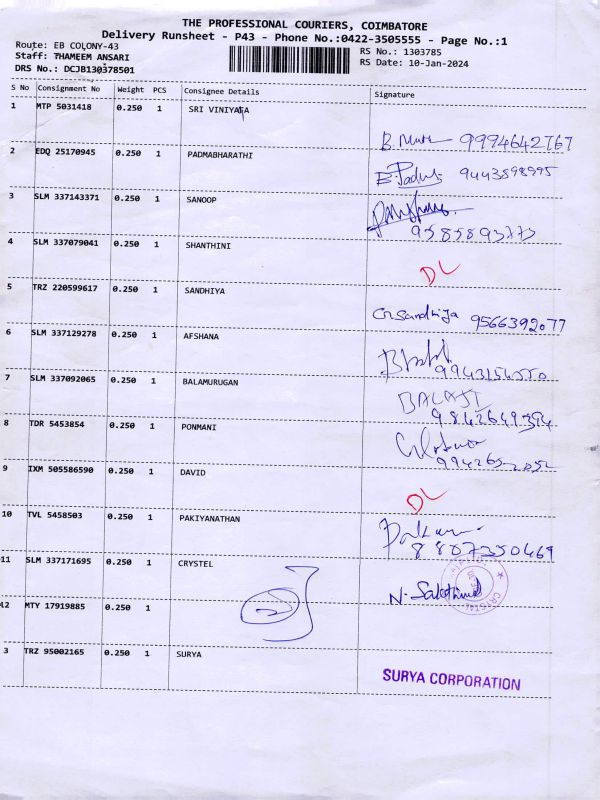 THE PROFESSIONAL COURIERS, COIMBATORE
Delivery Runsheet - P43 - Phone No.:0422-3505555 - Page No.:1
Route: EB COLONY-43
Staff: THAMEEM ANSARI
DRS No.: DCJB130378501
RS No.: 1303785
RS Date: 10-Jan-2024
S No Consignment No Weight PCS Consignee Details Signature
1 MTP 5031418 0.250 1 SRI VINIYAGA
9994642767
2 EDQ 25170945 0.250 1 PADMABHARATHI
3 SLM 337143371 0.250 1 SANOOP
4 SLM 337079041 0.250 1 SHANTHINI
DL
5 TRZ 220599617 0.250 1 SANDHIYA
Sandhiya 9566392077
6 SLM 337129278 0.250 1 AFSHANA
7 SLM 337092065 0.250 1 BALAMURUGAN
BALAJI
9842649394
8 TDR 5453854 0.250 1 PONMANI
9942652052
9 IXM 505586590 0.250 1 DAVID
DL
10 TVL 5458503 0.250 1 PAKIYANATHAN
8807350469
11 SLM 337171695 0.250 1 CRYSTEL
12 MTY 17919885 0.250 1
3 TRZ 95002165 0.250 1 SURYA
SURYA CORPORATION